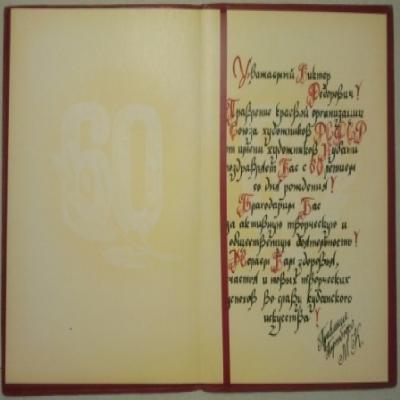 60
Уважаемый Виктор
Федорович!
Правление краевой организации
Союза художников РСФСР
от имени художников Кубани
поздравляет Вас с 60летием
со дня рождения!
Благодарим Вас
за активную творческую и
общественную деятельность!
Желаем Вам здоровья,
счастья и новых творческих
успехов во славу кубанского
искусства!